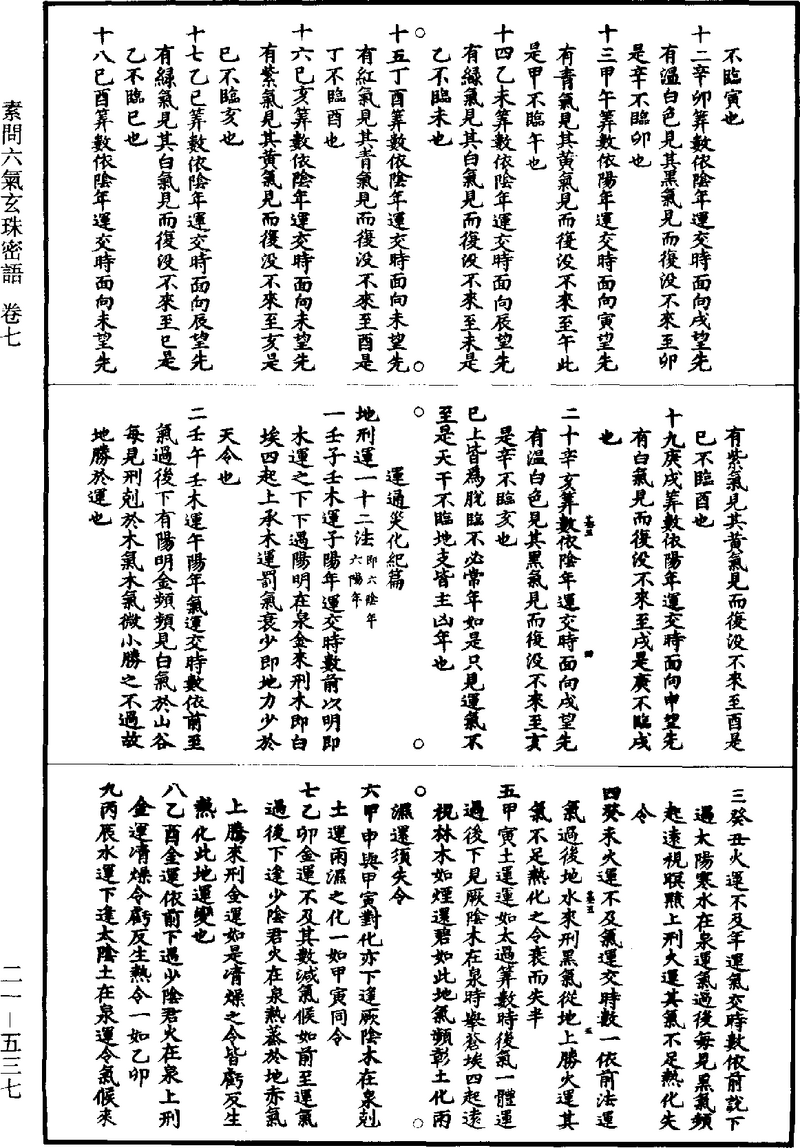 素問六氣玄珠密語　卷七
二一—五三七
不臨寅也
十二辛卯筭數依陰年運交時面向戌望先
有溫白色見其黑氣見而復没不來至卯
是辛不臨卯也
十三甲午筭數依陽年運交時面向寅望先
有青氣見其黃氣見而復没不來至午此
是甲不臨午也
十四乙未筭數依陰年運交時面向辰望先
有綠氣見其白氣見而復没不來至未是
乙不臨未也
十五丁酉筭數依陰年運交時面向未望先
有紅氣見其青氣見而復没不來至酉是
丁不臨酉也
十六巳亥筭數依陰年運交時面向未望先
有紫氣見其黃氣見而復没不來至亥是
巳不臨亥也
十七乙巳筭數依陰年運交時面向辰望先
有綠氣見其白氣見而復没不來至巳是
乙不臨巳也
十八巳酉筭數依陰年運交時面向未望先
有紫氣見其黃氣見而復没不來至酉是
巳不臨酉也
十九庚戌筭數依陽年運交時面向申望先
有白氣見而復没不來至戌是庚不臨戌
也
二十辛亥筭數依陰年運交時面向戌望先
有溫白色見其黑氣見而復没不來至亥
是辛不臨亥也
巳上皆爲脫臨不必常年如是只見運氣不
至是天干不臨地支皆主凶年也
運通災化紀篇
地刑運一十二法即六陰年六陽年
一壬子壬木運子陽年運交時數前以明即
木運之下下遇陽明在泉金來刑木即白
埃四起上承木運罰氣衰少即地力少於
天令也
二壬午壬木運午陽年氣運交時數依前至
氣過後下有陽明金頻頻見白氣於山谷
每見刑剋於木氣木氣微小勝之不過故
地勝於運也
三癸丑火運不及年運氣交時數依前說下
遇太陽寒水在泉運氣過後每見黑氣頻
起遠視暝黯上刑火運其氣不足熱化失
令
四癸未火運不及氣運交時數一依前法運
氣過後地水來刑黑氣從地上勝火運其
氣不足熱化之令衰而失半
五甲寅土運運如太過筭數時後氣一體運
過後下見厥陰木在泉時舉蒼埃四起遠
視林木如煙還碧如此地氣頻彰土化雨
濕還須失令
六甲申與甲寅對化亦下逢厥陰木在泉剋
土運雨濕之化一如甲寅同令
七乙卯金運不及其數減氣候如前至運氣
過後下逢少陰君火在泉熱蒸於地赤氣
上騰來刑金運如是清燥之令皆虧反生
熱化此地運變也
八乙酉金運依前下遇少陰君火在泉上刑
金運清燥令虧反生熱令一如乙卯
九丙辰水運下逢太陰土在泉運令氣候來